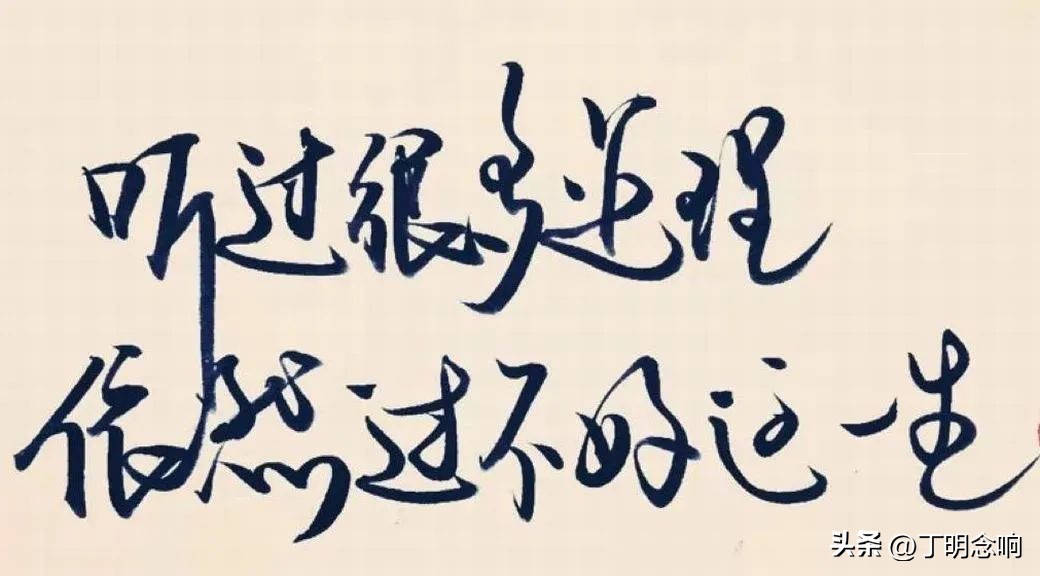 听过很多道理
依然过不好这一生
头条 @丁明念响